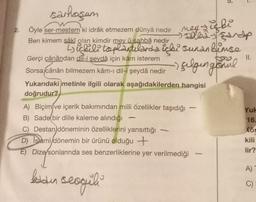 sarhoşum
2. Öyle ser-mestem ki idrâk etmezem dünyâ nedir
mey → içki
Ben kimem sâkî olan kimdir mey ü sahbâ nedir
→ içkili toplantılarda içki sunan kimse
Gerçi cânândan dil-i şeydâ için kâm isterem
Sorsa cânân bilmezem kâm-ı dil-i şeydâ nedir
II.
Yukarıdaki metinle ilgili olarak aşağıdakilerden hangisi
doğrudur?
A) Biçim ve içerik bakımından millî özellikler taşıdığı —
B) Sade bir dille kaleme alındığı —
C) Destan döneminin özelliklerini yansıttığı —
D) İslami dönemin bir ürünü olduğu +
E) Dize sonlarında ses benzerliklerine yer verilmediği —
Yuk
16.
kili
lir?
A)
C)